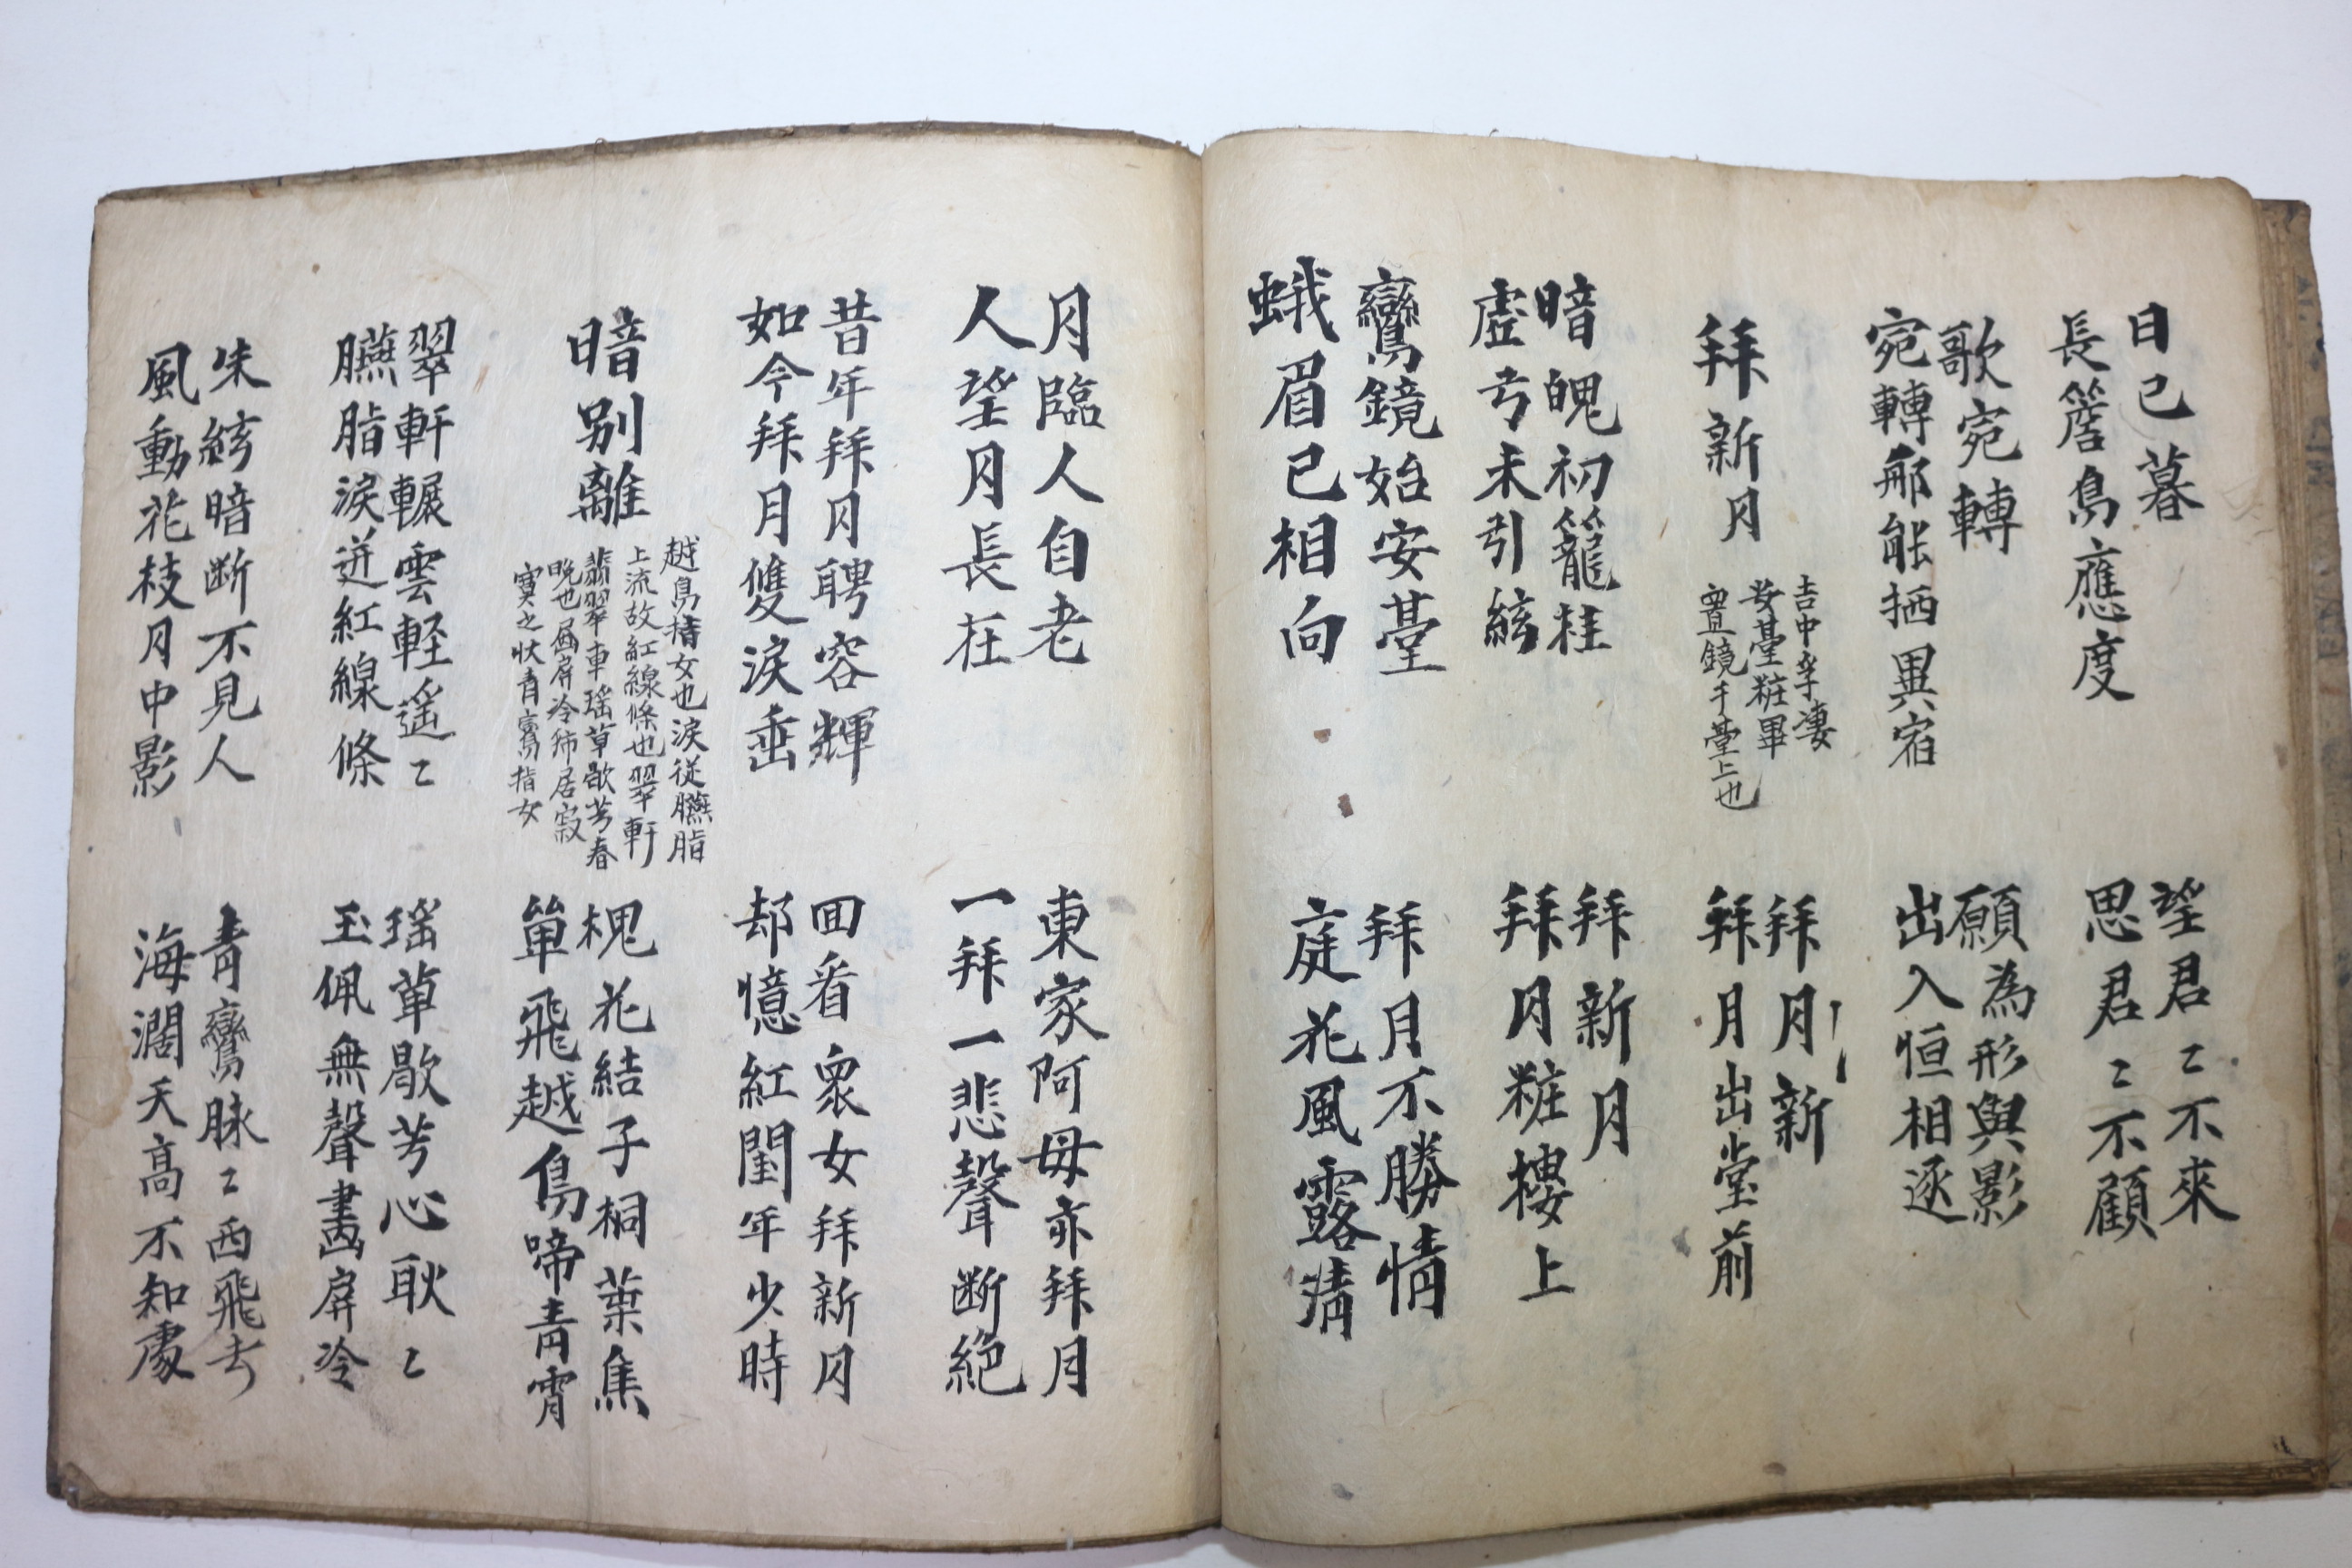 日已暮
長簷鳥應度
望君〻不來
思君〻不顧
歌宛轉
宛轉那能栖異宿
願為形與影
出入恒相逐
拜新月
吉中孚凄
安臺粧畢
置鏡于臺上也
拜月新
拜月出堂前
暗魄初籠桂
虛弓未引絃
拜新月
拜月粧樓上
鸞鏡始安臺
蛾眉已相向
拜月不勝情
庭花風露清
月臨人自老
人望月長在
東家阿母亦拜月
一拜一悲聲断絕
昔年拜月聘容輝
如今拜月雙淚垂
回看衆女拜新月
却憶紅閨年少時
暗別離
越鳥指女也淚從臙脂
上流故紅線條也翠軒
翡翠車瑤草歇芳春
晚也畵屏冷居寂
寞之狀青鸞指女
槐花結子桐葉焦
單飛越鳥啼青霄
翠軒輾雲輕遙〻
臙脂淚迸紅線條
瑤草歇芳心耿〻
玉佩無聲畵屏冷
朱絃暗断不見人
風動花枝月中影
青鸞脉〻西飛去
海濶天高不知處